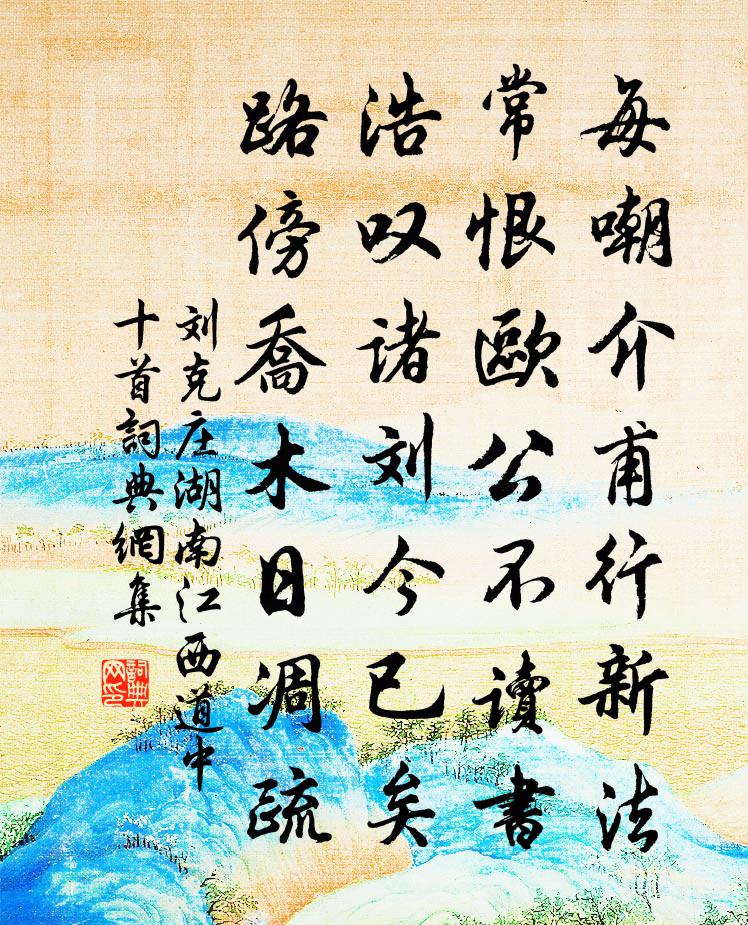 每嘲介甫行新法
常恨歐公不读書
浩叹诸刘今已矣
路傍喬木日凋疏
刘克庄湖南江西道中
十首詞典網集
詞典网印